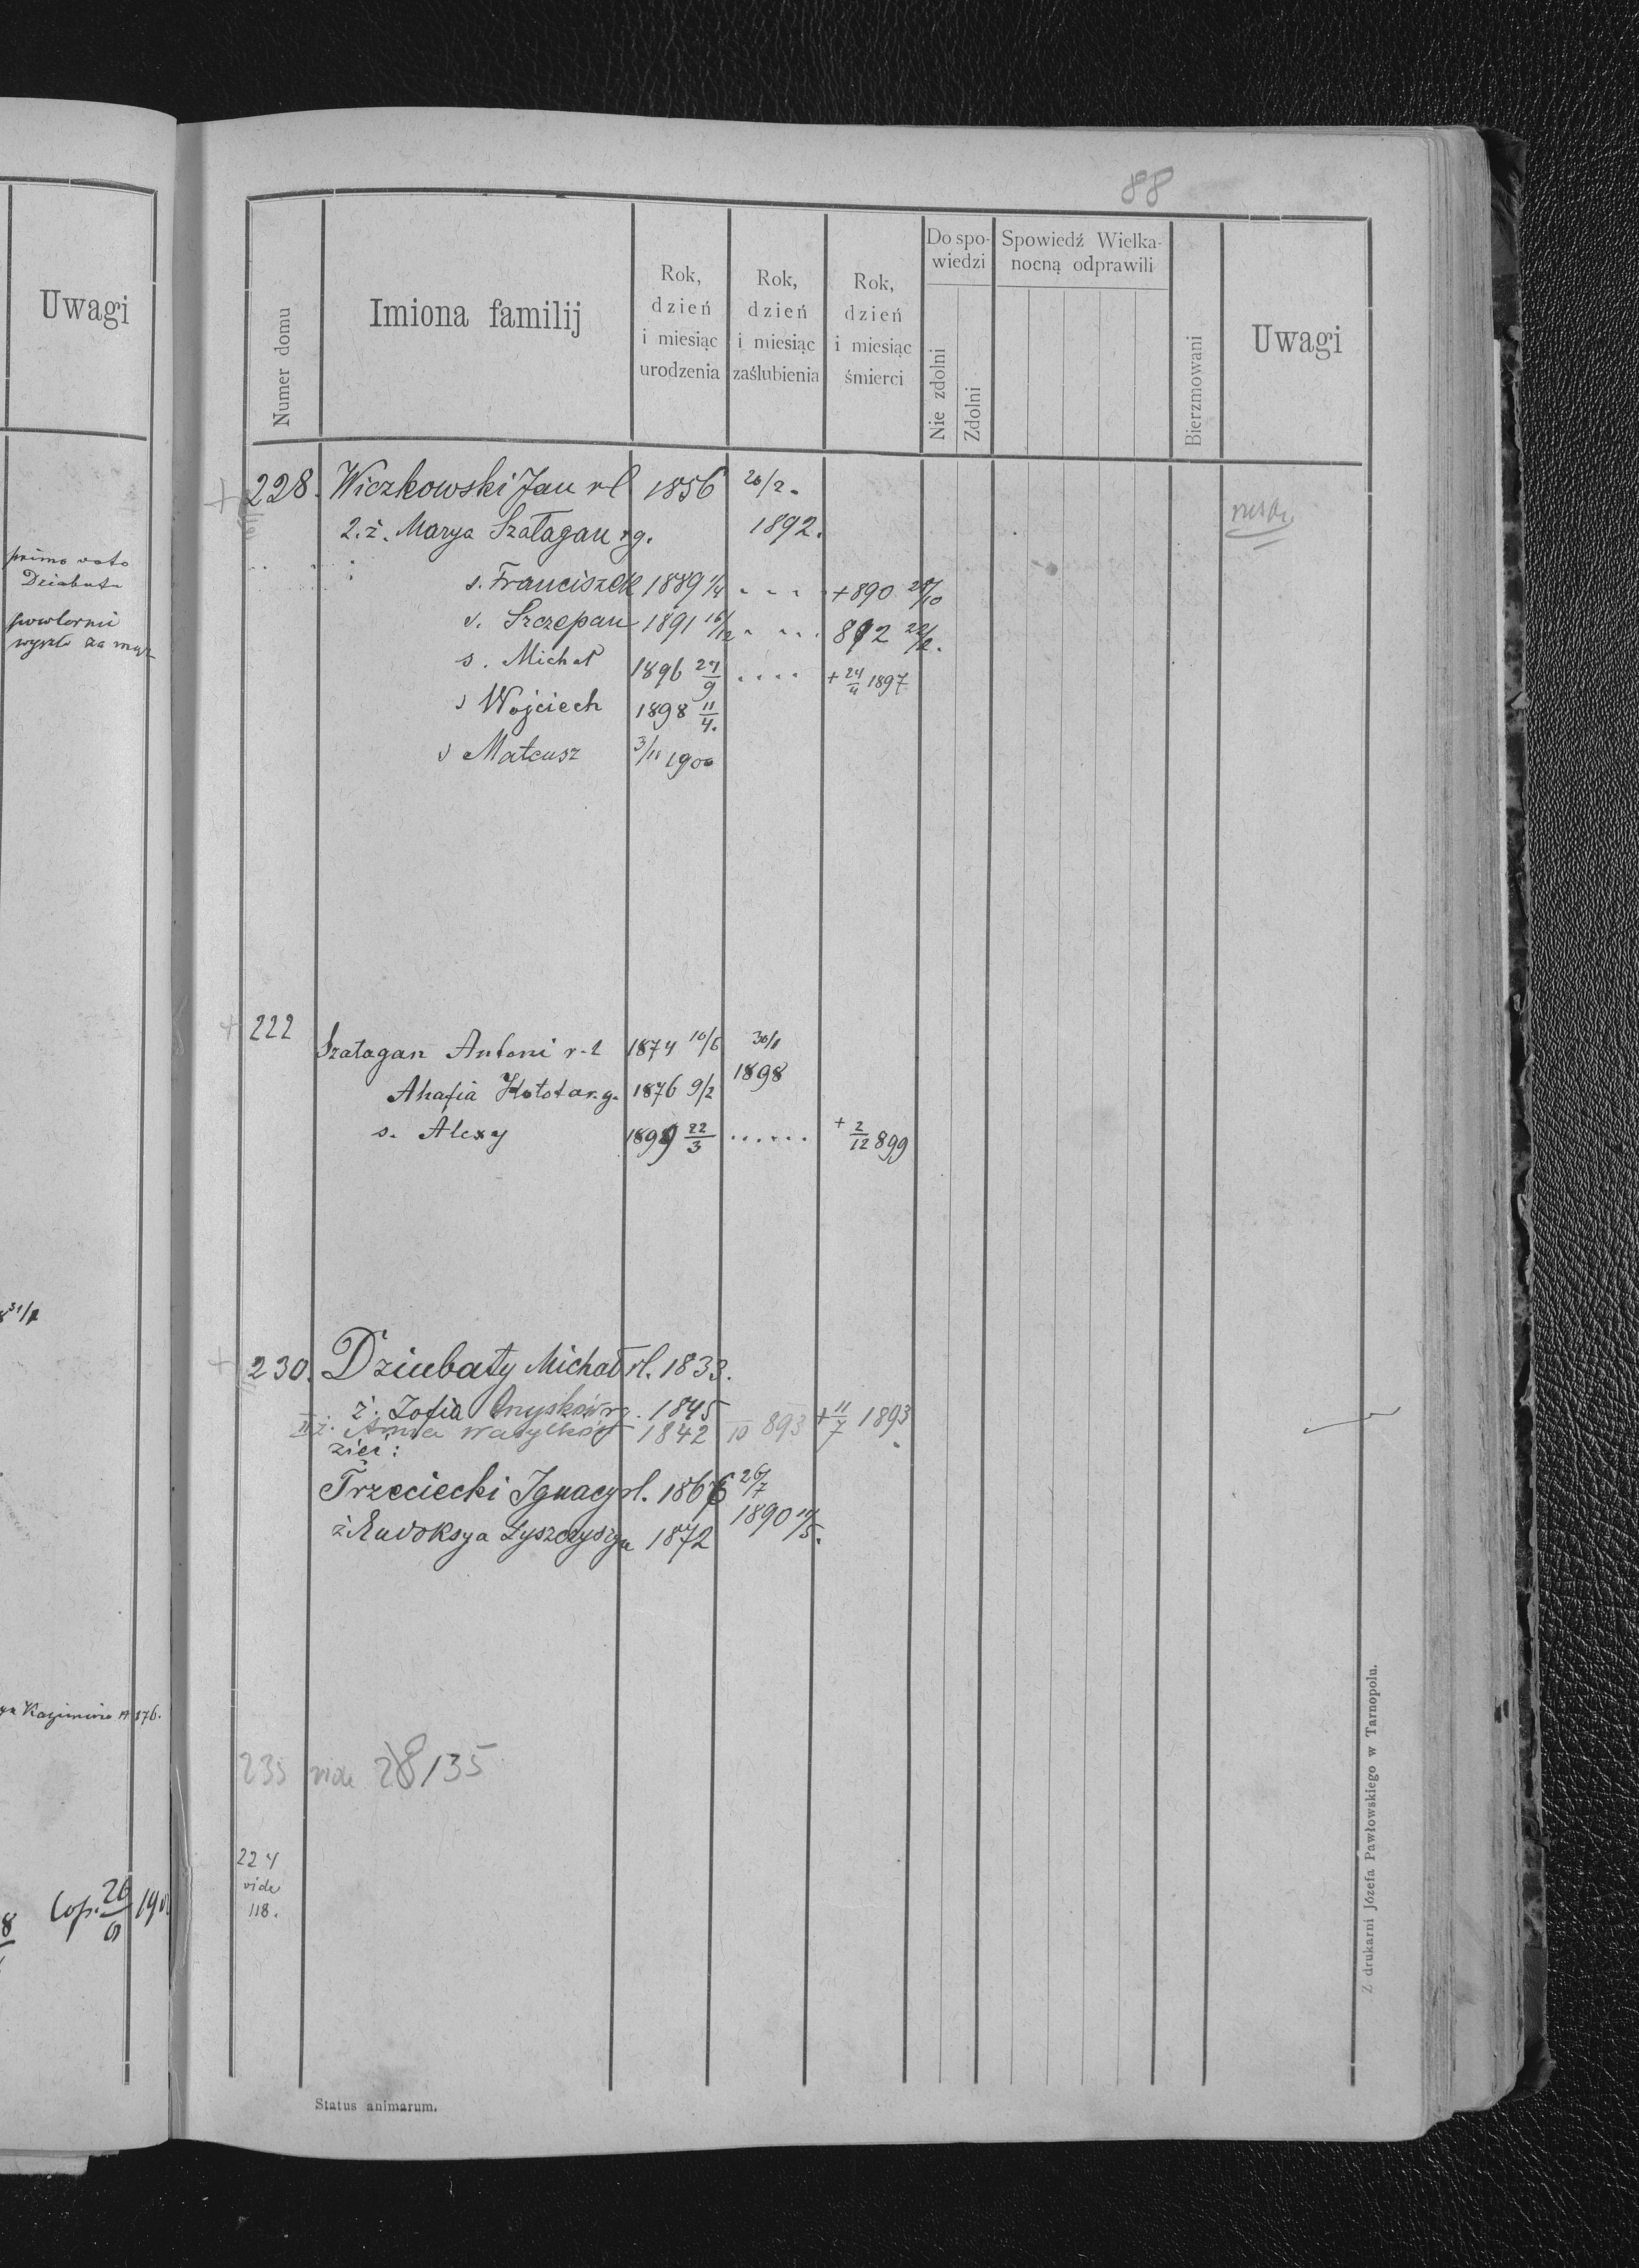 Uwagi
primo voto
powtórnie
wyszła za mąż
Cop. 26/9
88
Numer domu
Imiona familij
Rok, dzień i miesiąc urodzenia
Rok, dzień i miesiąc zaślubienia
Rok, dzień i miesiąc śmierci
Do spo-
wiedzi
Nie zdolni
Zdolni
Spowiedź Wielka-
nocną odprawili
Bierzmowani
Uwagi
228. Wiczkowski Jan rl 1856 20/2.
2. ż. Marya Szałagan rg. 1892.
s. Franciszek 1889 1/4 . . . . +890 28/10
s. Szczepan 1891 16/12 . . . . 892 22/2.
s. Michał 1896 27/9 . . . . + 24/4 1897
s Wojciech 1898 11/4.
s Mateusz 3/11 1900
222
Szałagan Antoni r-l 1874 10/6 30/1
1898
Ahafia Hołota r.g. 1876 9/2
s. Alexy 1899 22/3 . . . . . . + 2/12 899
230. Dziubaty Michał rl. 1833.
ż. Zofia Onyśków rg. 1845
II ż. Anna Wasylków 1842 10 893 + 11/7 1893
zięć:
Trzeciecki Ignacy rl. 1866 26/7
1890 19/5.
ż. Eudoksya Łyszczyszyn 1872
235 vide 28/35
224
vide
118.
Status animarum.
Z drukarni Józefa Pawłowskiego w Tarnopolu.